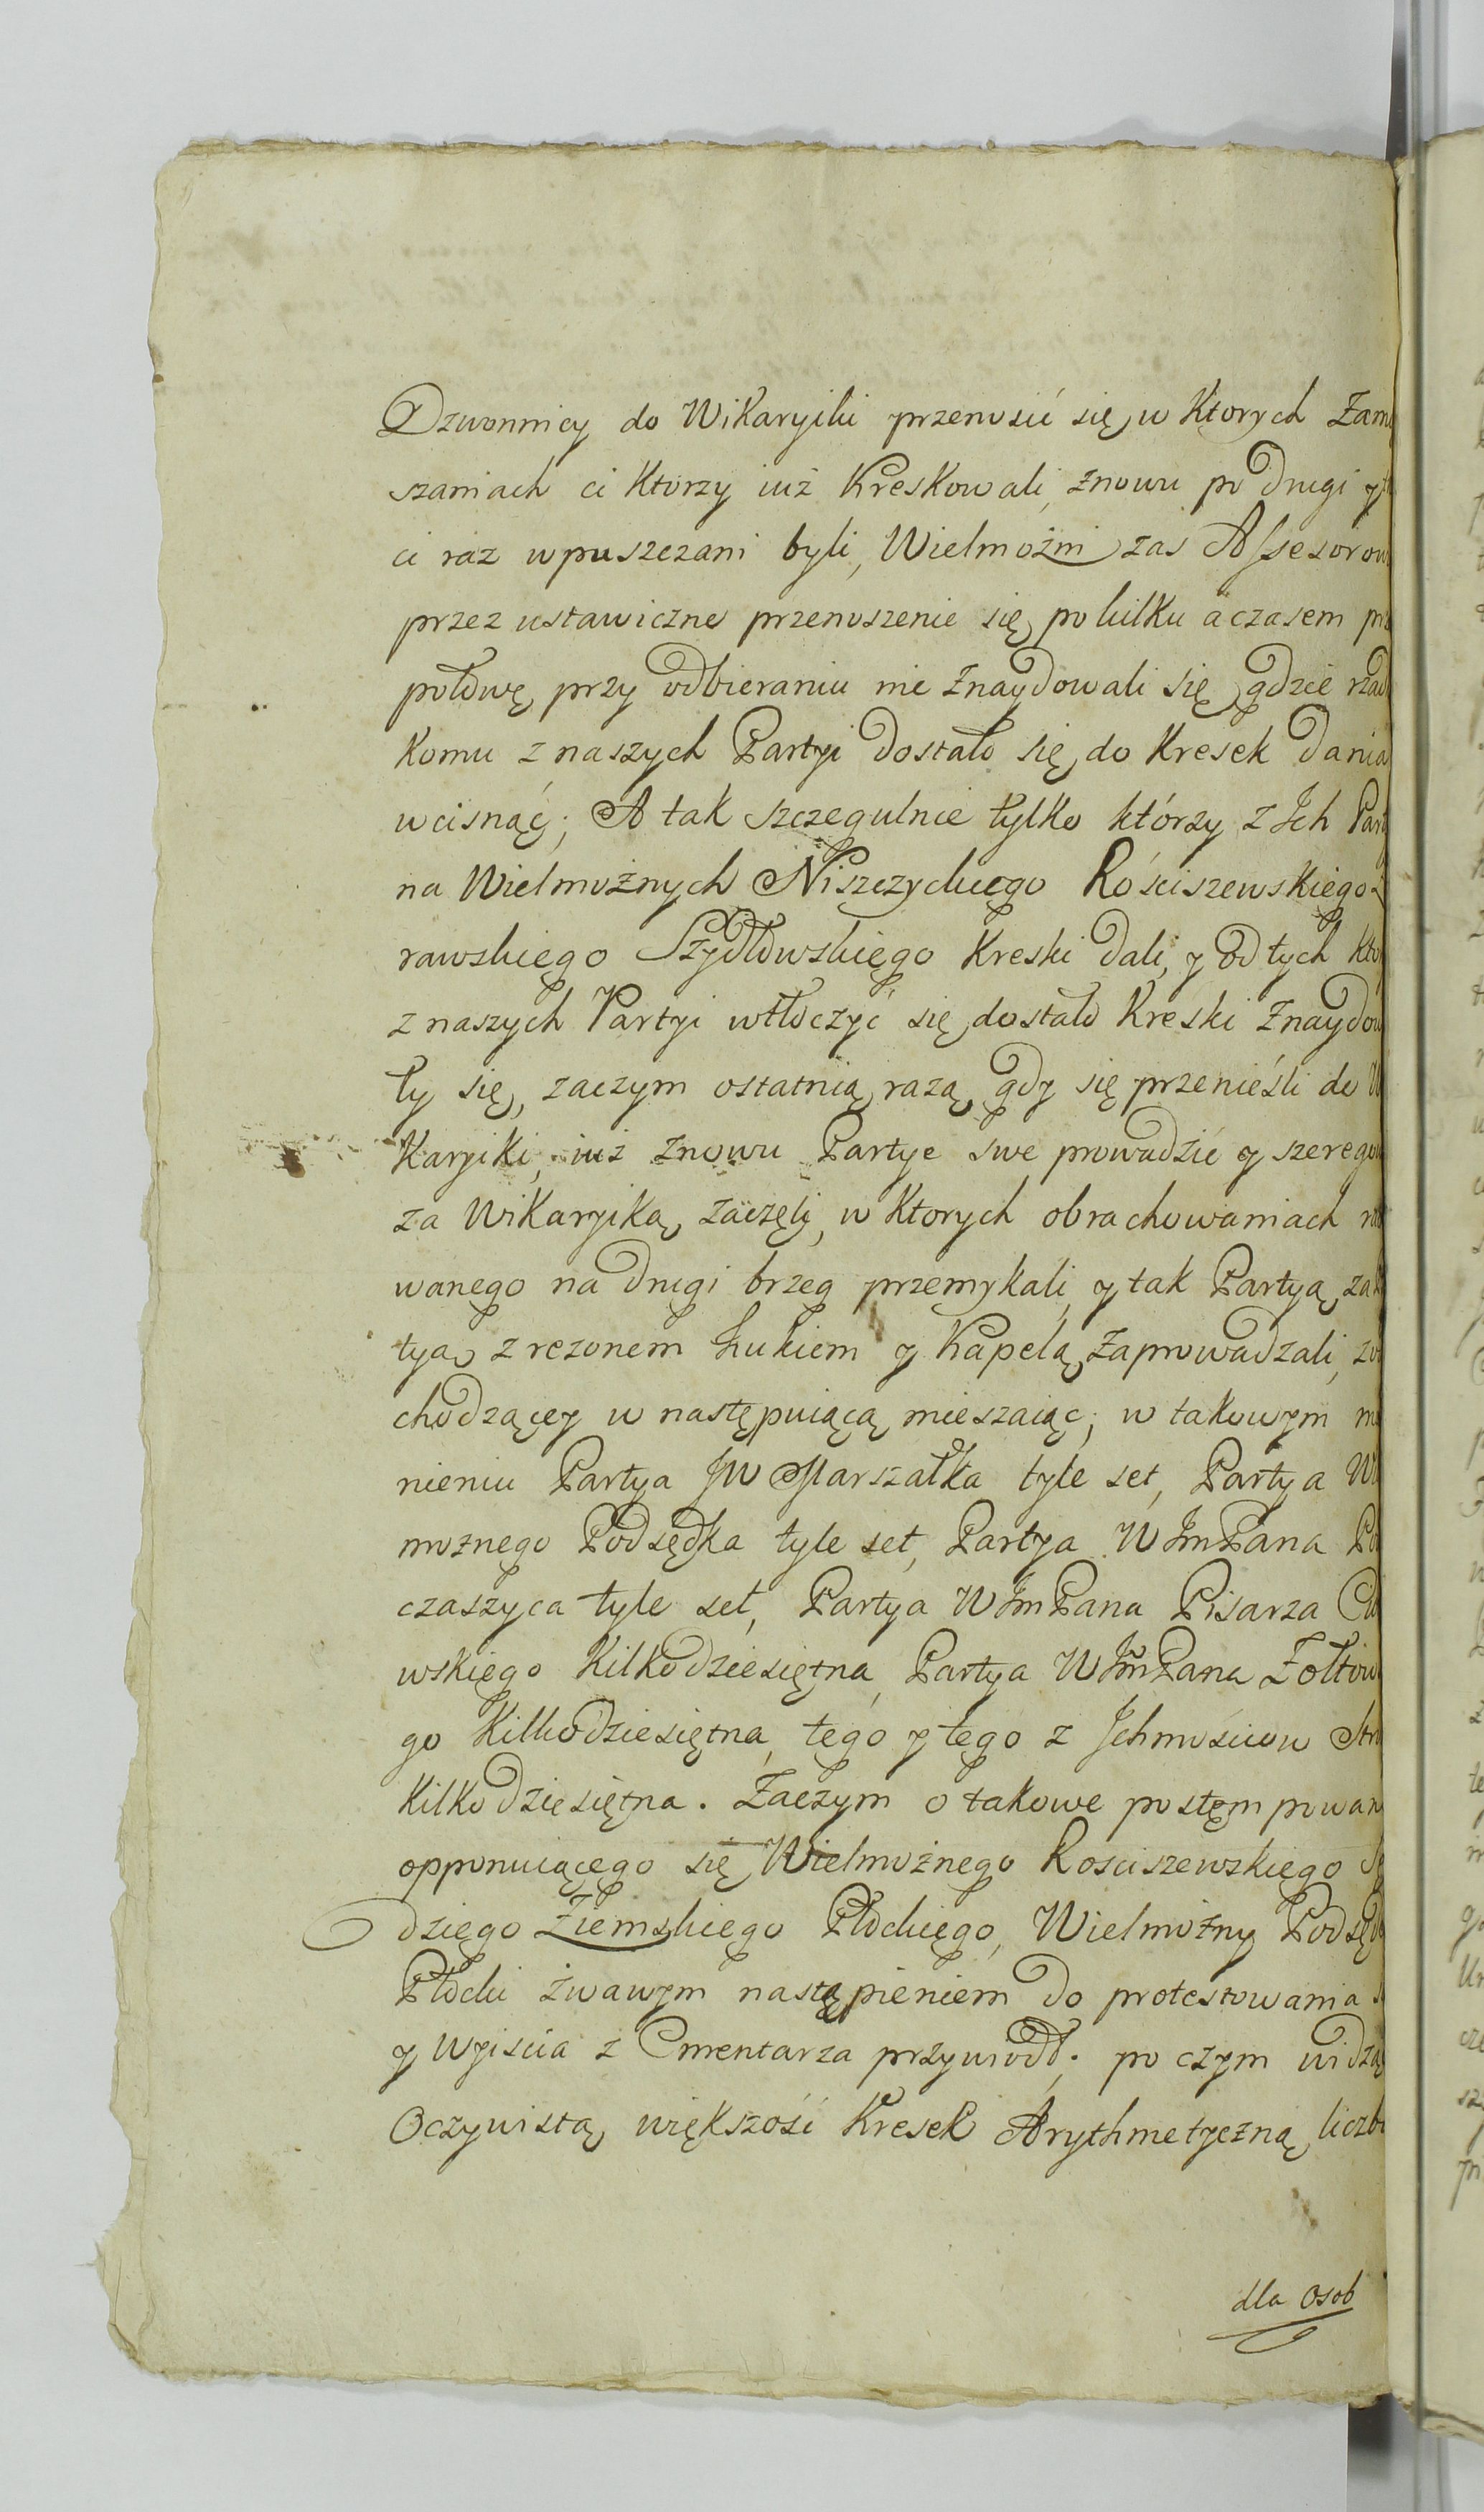 Dzwonnicy do Wikaryiki przenosić się, w Ktorych Zam
szaniach ci Ktorzy iuż Kreskowali, znowu po drugi y
ci raz wpuszczani byli, Wielmożni zas Assesorow
przez ustawiczne przenoszenie się, po kilku a czasem
połowę, przy odbieraniu nie znaydowali się, gdzie rzad
Komu z naszych Partyi dostało się, do Kresek dania
wcisnąć; A tak szczegulnie tylko którzy z Ich Part
na Wielmożnych Niszczyckiego Rościszewskiego
rawskiego Szydłowskiego Kreski dali, y od tych Kto
z naszych Partyi wtłoczyć się, dostało Kreski znaydow
ły się, zaczym ostatnią, razą, gdy się przenieśli do W
Karyiki, iuż znowu Partye swe prowadzić y szerego
za Wikaryiką, zaczęli, w Ktorych obrachowaniach
wanego na drugi brzeg przemykali, y tak Partyą, za
tyą, z rezonem hukiem y Kapelą, zaprowadzali,
chodzącey w następuiącą, mieszaiąc; w takowym
nieniu Partya JW Marszałka tyle set, Partya Wi
możnego Podsędka tyle set, Partya WJmPana Po
czaszyca tyle set, Partya WJmPana Pisarza
wskiego Kilkodziesiętna, Partya WJmPana Żołtow
go Kilkodziesiętna, tego y tego z Jchmościow
Kilkodziesiętna. Zaczym o takowe postęmpowan
opponuiącego się Wielmożnego Rosciszewskiego Sę
dziego Ziemskiego Płockiego, Wielmożny Podsęd
Płocki żwawym nastąpieniem do protestowania
y wyiscia z Cmentarza przywiodł; po czym widzą
Oczywistą, większość Kresek Arythmetyczną, liczb
dla Osob